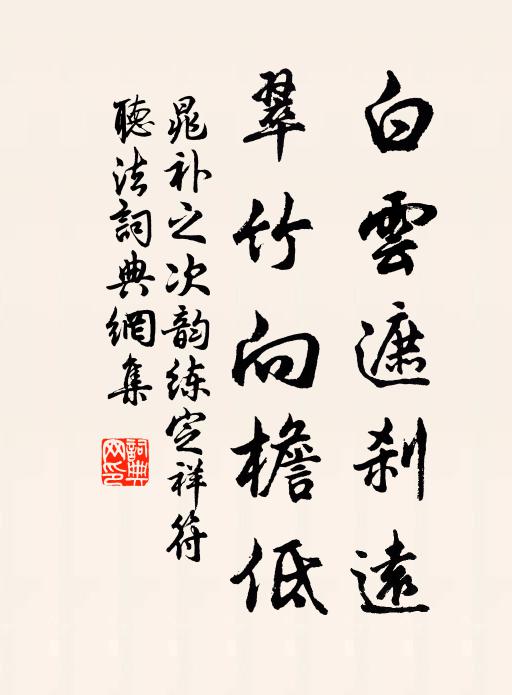 白雲遮刹遠
翠竹向檐低
晁补之次韵练定祥符
聽法詞典網集
詞典
网印